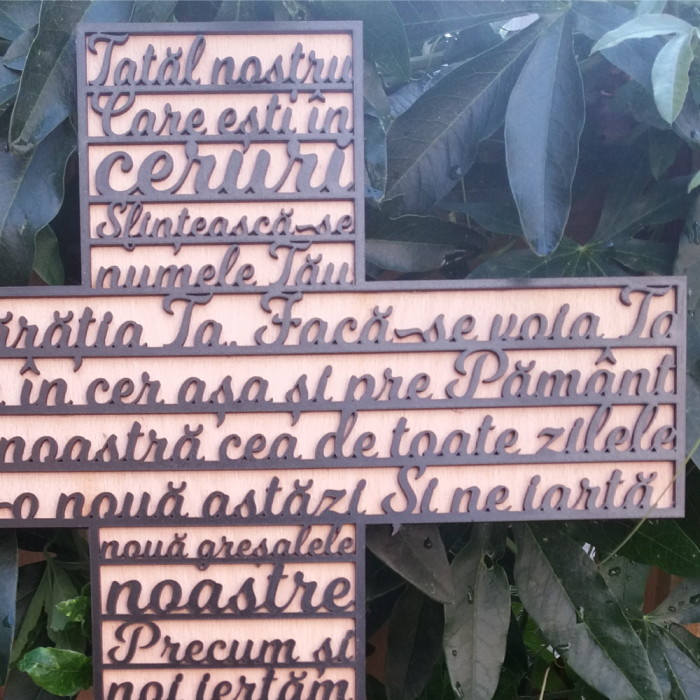 Tatăl nostru
Care ești în
ceruri
Sfințească-se
numele Tău
ărăția Ta. Facă-se voia Ta
în cer așa și pre Pământ
noastră cea de toate zilele
-o nouă astăzi Și ne iartă
nouă greșalele
noastre
Precum și
noi iertăm